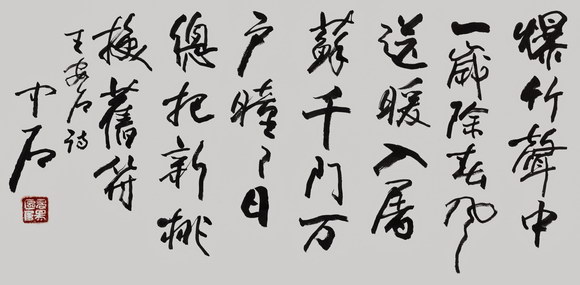 爆竹聲中
一歲除春风
送暖入屠
蘇千门万
户曈〻日
總把新桃
换舊符
王安石诗
中石